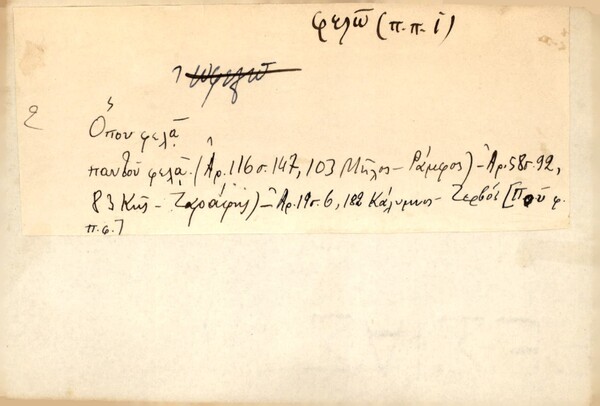 φελῶ (π.π. 1)
ὠφελῶ
2
Ὅπου φελᾷ
παντοῦ φελᾷ. (Ἀρ. 116 σ. 147, 103 Μῆλος - Ράμφος) - Ἀρ. 58 σ. 92,
83 Κῶς - Ζαράφτης) - Ἀρ. 19 σ. 6, 182 Κάλυμνος - Ζερβός [Ποῦ φ.
π. φ.]